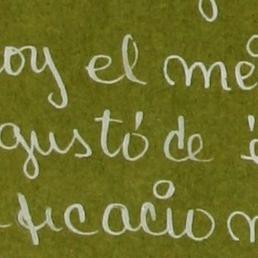 oy el me
gustó de e
ficació n